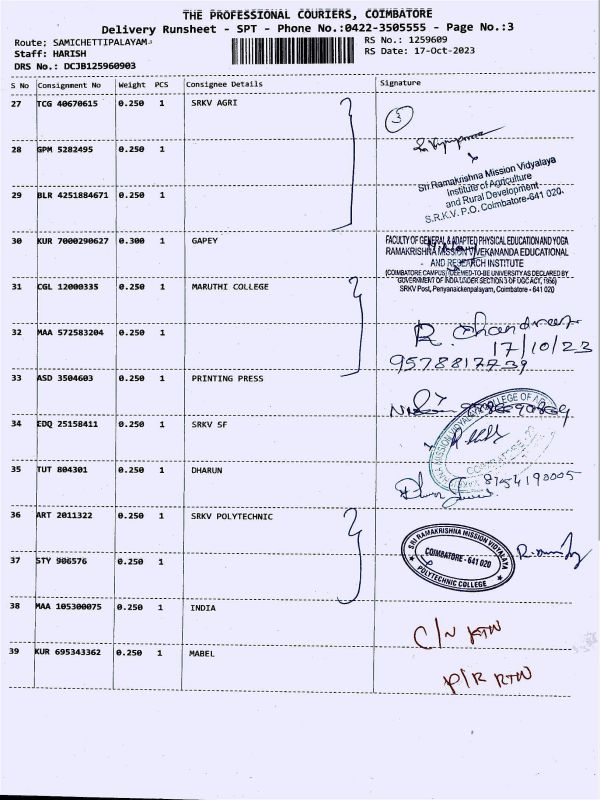 THE PROFESSIONAL COURIERS, COIMBATORE
Delivery Runsheet - SPT - Phone No.:0422-3505555 - Page No.:3
Route; SAMICHETTIPALAYAM-
Staff: HARISH
DRS No.: DCJB125960903
RS No.: 1259609
RS Date: 17-Oct-2023
S No Consignment No Weight PCS Consignee Details Signature
27 TCG 40670615 0.250 1 SRKV AGRI
3
28 GPM 5282495 0.250 1
Sri Ramakrishna Mission Vidyalaya
Institute of Agriculture
and Rural Development
S.R.K.V. P.O. Coimbatore-641 020.
29 BLR 4251884671 0.250 1
30 KUR 7000290627 0.300 1 GAPEY
FACULTY OF GENERAL & ADAPTED PHYSICAL EDUCATION AND YOGA
RAMAKRISHNA MISSION VIVEKANANDA EDUCATIONAL
AND RESEARCH INSTITUTE
(COIMBATORE CAMPUS) (DEEMED-TO-BE UNIVERSITY AS DECLARED BY
GOVERNMENT OF INDIA UNDER SECTION 3 OF UGC ACT, 1956)
SRKV Post, Periyanaickenpalayam, Coimbatore - 641 020
31 CGL 12000335 0.250 1 MARUTHI COLLEGE
32 MAA 572583204 0.250 1
R. Chandra
17/10/23
9578817739
33 ASD 3504603 0.250 1 PRINTING PRESS
34 EDQ 25158411 0.250 1 SRKV SF
35 TUT 804301 0.250 1 DHARUN
8754190005
36 ART 2011322 0.250 1 SRKV POLYTECHNIC
SRI RAMAKRISHNA MISSION VIDYALAYA
COIMBATORE - 641 020
POLYTECHNIC COLLEGE
37 STY 906576 0.250 1
38 MAA 105300075 0.250 1 INDIA
C/N RTN
39 KUR 695343362 0.250 1 MABEL
P/R RTN